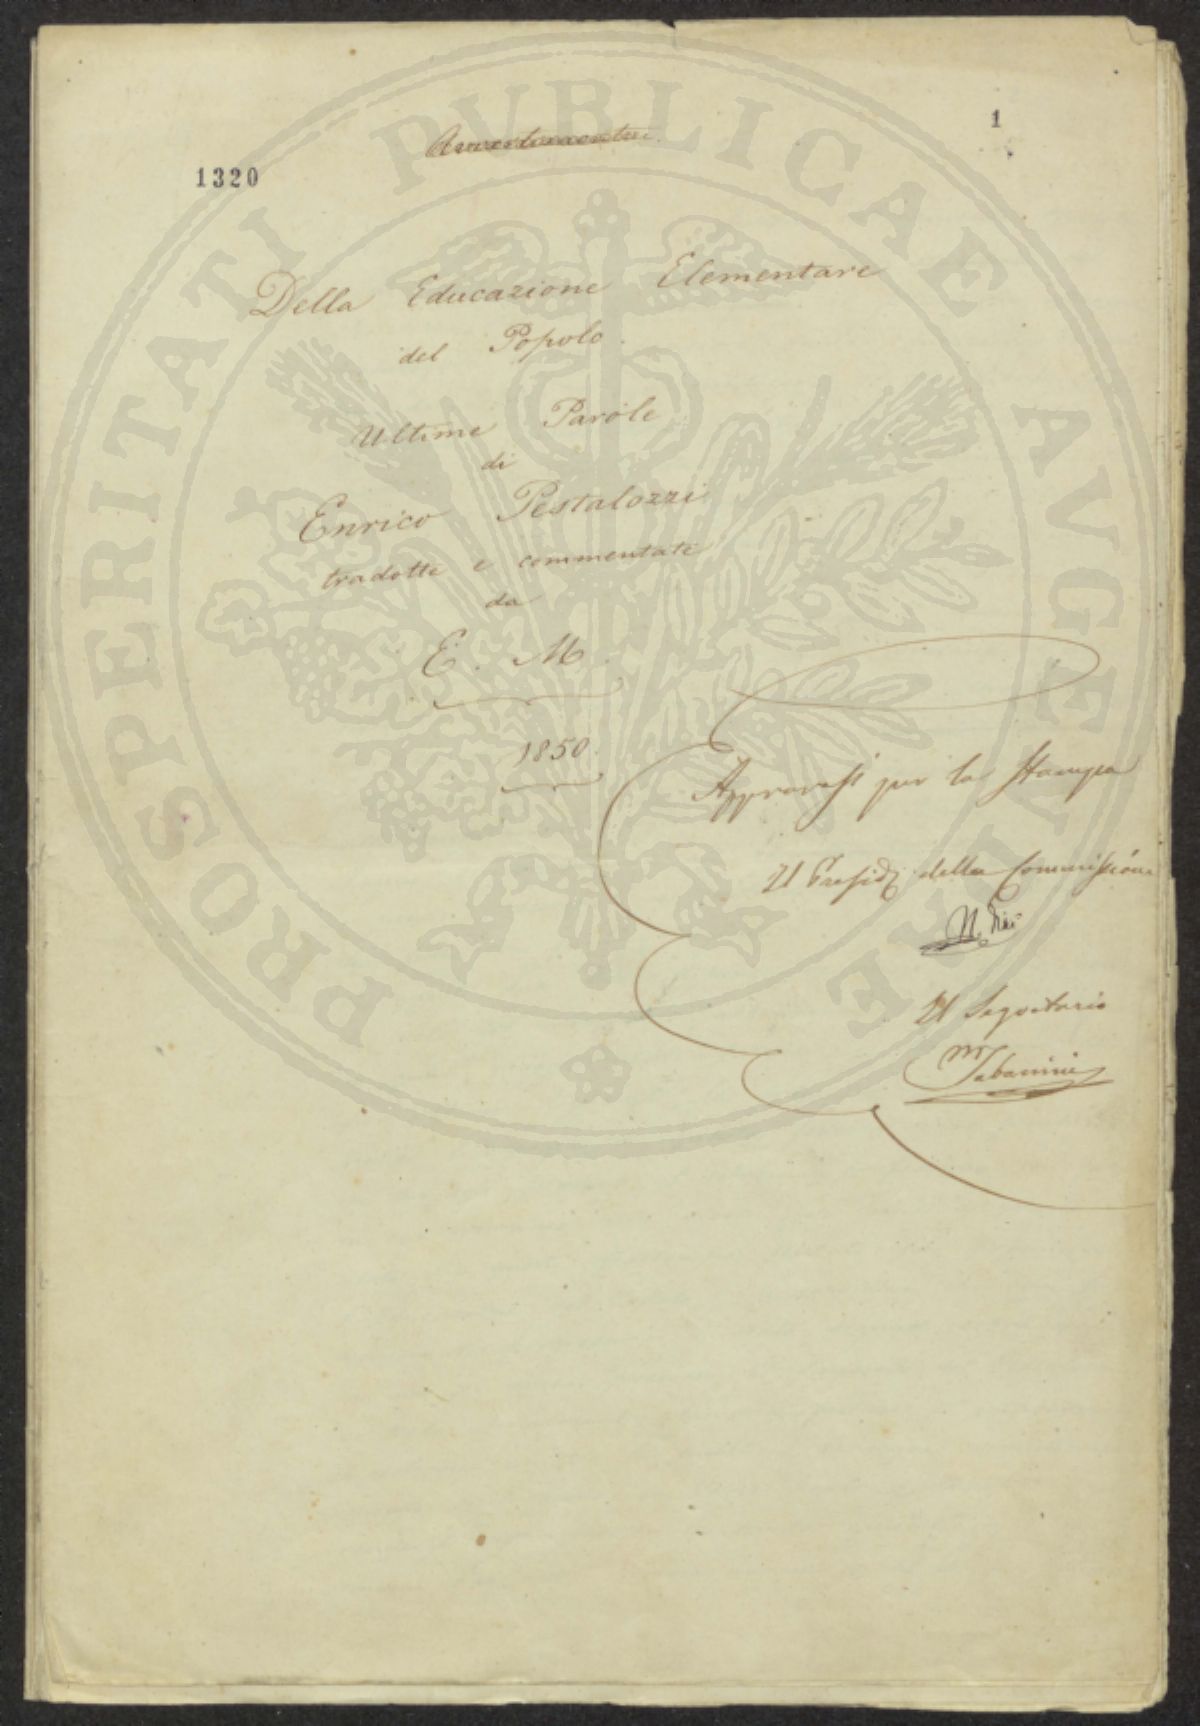 1
1320
Della Educazione Elementare
del Popolo.
Ultime Parole
di
Enrico Pestalozzi
tradotte e commentate
da
E. M.
1850.
Approvasi per la Stampa
Il Presid. della Commissione
Il Segretario
PROSPERITATI PVBLICAE AVGENDAE